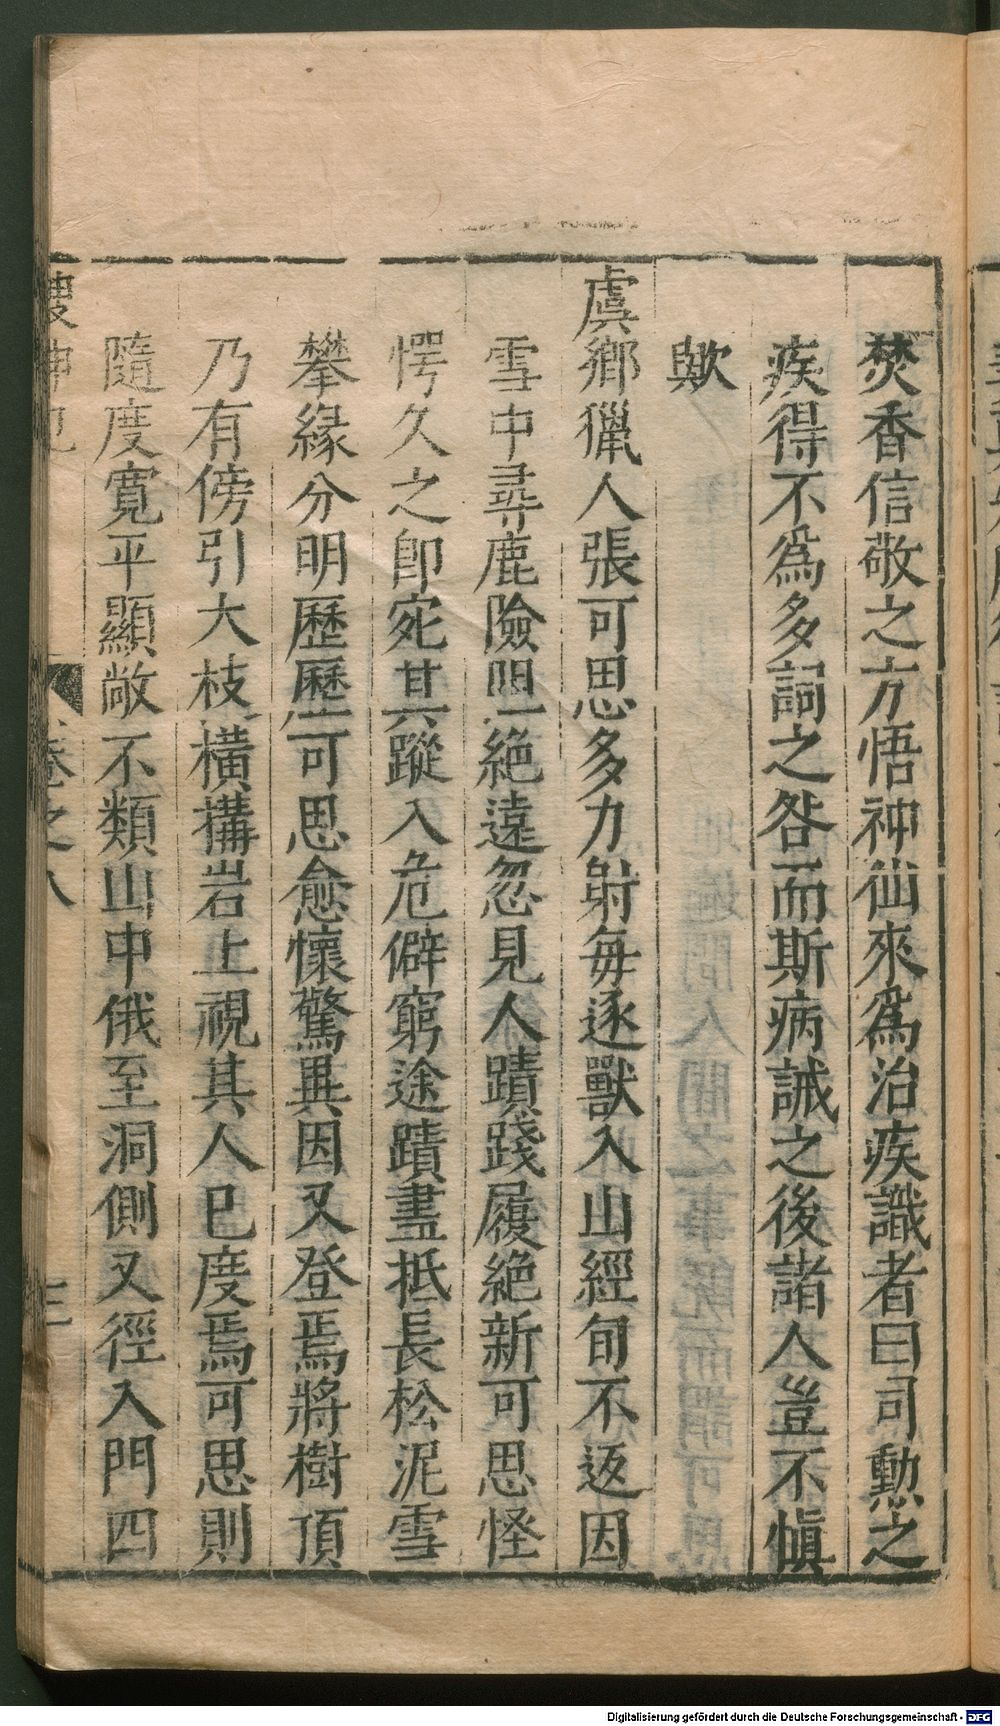 焚香信敬之方悟神仙來爲治疾識者曰司勳之
疾得不爲多詞之咎而斯病誡之後諸人豈不愼
歟
虞鄉獵人張可思多力射每逐獸入山經旬不返因
雪中尋鹿險阻絶遠忽見人蹟踐履絶新可思怪
愕久之卽宛其蹤入危僻窮途蹟盡抵長松泥雪
攀緣分明歷歷可思愈懷驚異因又登焉將樹頂
乃有傍引大枝橫搆岩上視其人已度焉可思則
隨度寬平顯敞不類山中俄至洞側又徑入門四
搜神記
卷之八
三
Digitalisierung gefördert durch die Deutsche Forschungsgemeinschaft - DFG